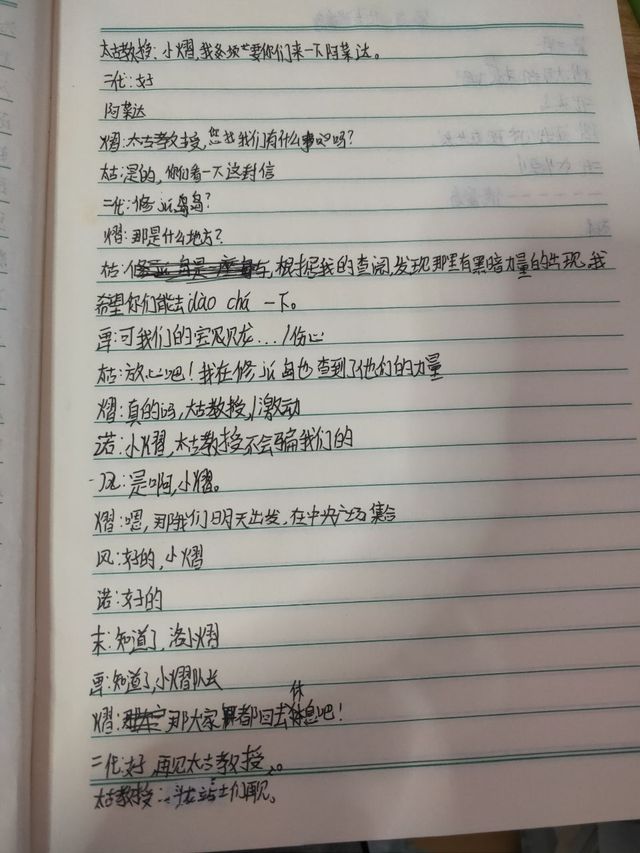 太古教授:小熠,我必须要你们来一下阿莱达。
二代:好
阿莱达
熠:太古教授,您找我们有什么事吗?
太古:是的,你们看一下这封信
二代:修派岛?
熠:那是什么地方?
太古:根据我的查阅,发现那里有黑暗力量的出现,我
希望你们能去dào chá 一下。
雨:可我们的宝贝龙.../伤心
太古:放心吧!我在修派岛也查到了他们的力量
熠:真的吗,太古教授/激动
诺:小熠,太古教授不会骗我们的
风:是啊,小熠。
熠:嗯,那我们明天出发,在中央广场集合
风:好的,小熠
诺:好的
末:知道了,洛小熠
雨:知道了,小熠队长
熠:那大家都回去休息吧!
二代:好,再见太古教授。
太古教授:斗龙战士们再见。